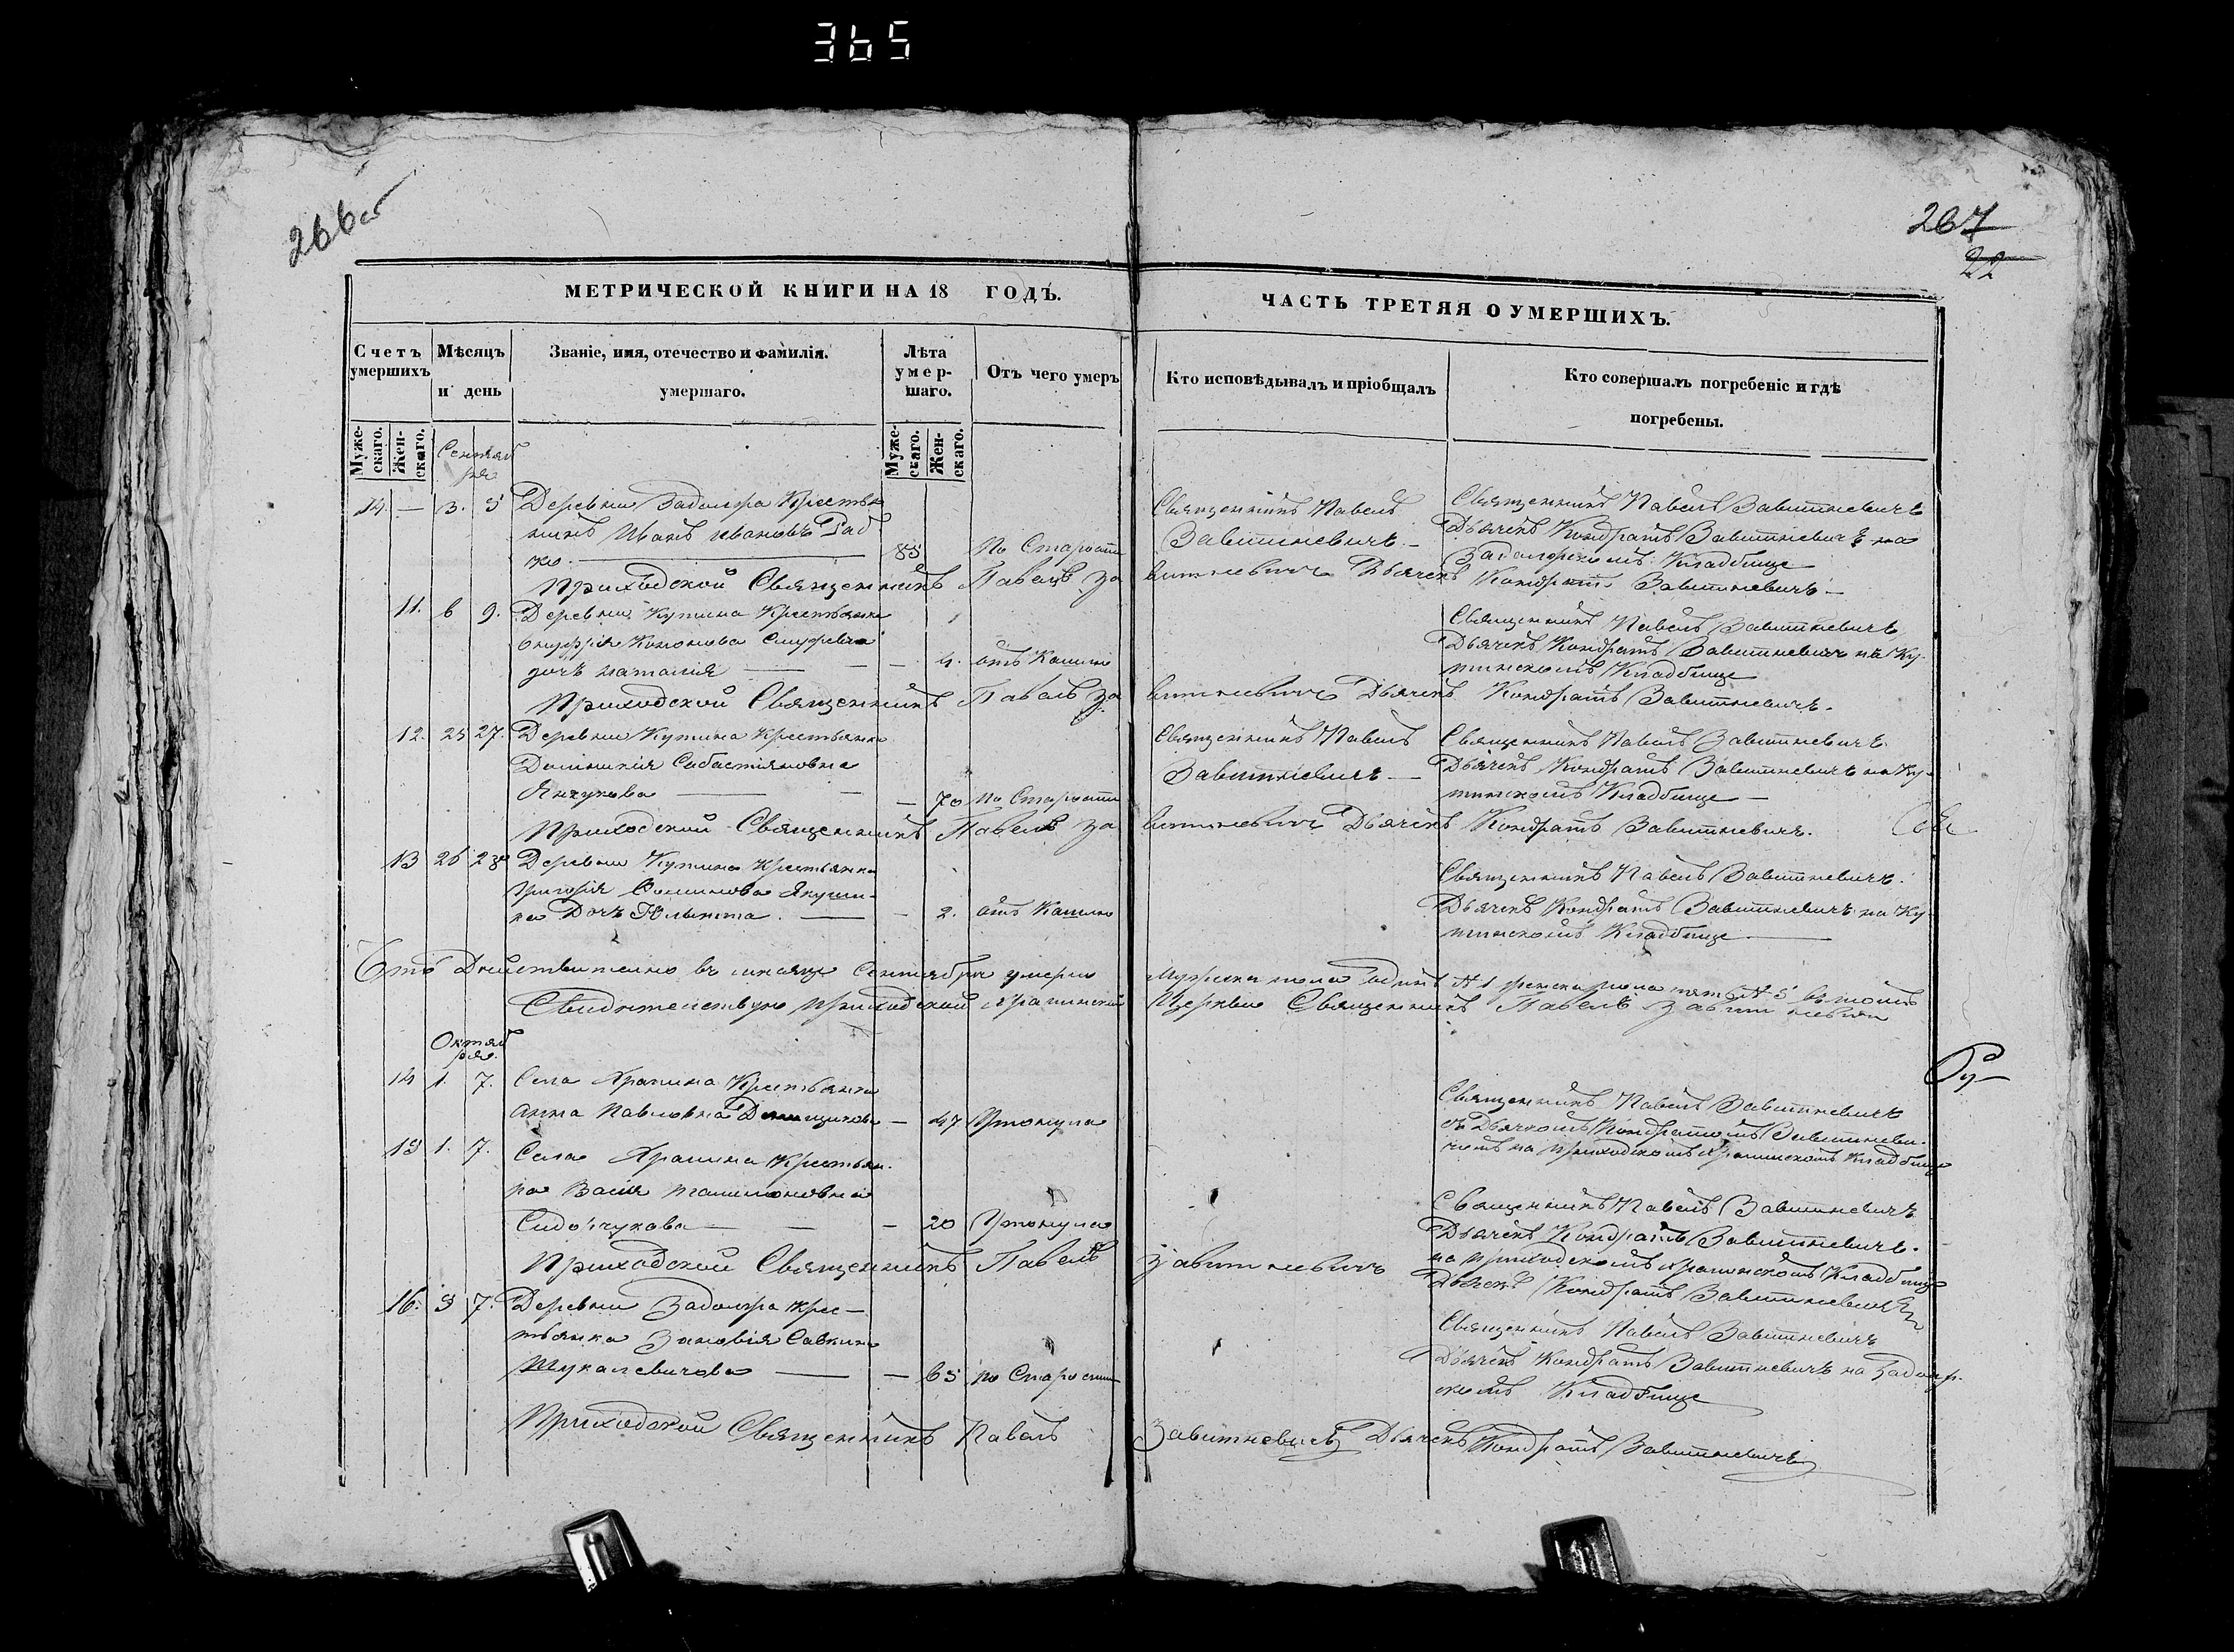 365
266об
267
22
МЕТРИЧЕСКОЙ КНИГИ НА 18 ГОДЪ.
ЧАСТЬ ТРЕТЯЯ О УМЕРШИХЪ.
Счетъ умершихъ
Мѣсяцъ и день
Званіе, имя, отечество и фамилія. умершаго.
Лѣта умер-шаго.
Отъ чего умеръ
Кто исповѣдывалъ и пріобщалъ
Кто совершалъ погребеніе и гдѣ погребены.
Муже-скаго.
Жен-скаго.
Муже-скаго.
Жен-скаго.
Сентяб
ря
14. — 3. 5 Деревни Крестья
нинъ Иванъ Ивановъ
ко. 85 По Старости
Священникъ Павелъ
Завитневичъ. —
Священникъ Павелъ Завитневичъ
Дьячекъ Кондратъ Завитневичъ на
Кладбище
Приходской Священникъ Павелъ За витневичъ Дьячекъ Кондратъ Завитневичъ. —
11. 6 9. Деревни Кутина Крестьянина
Кононова
дочъ Наталія — 4. отъ Кашлю
Священникъ Павелъ Завитневичъ
Дьячекъ Кондратъ Завитневичъ на Ку-
тинскомъ Кладбище
Приходской Священникъ Павелъ За витневичъ Дьячекъ Кондратъ Завитневичъ.
12. 25 27. Деревни Кутина Крестьянка
Сабастіяновна
Янчукова — 70 По Старости
Священникъ Павелъ
Завитневичъ —
Священникъ Павелъ Завитневичъ.
Дьячекъ Кондратъ Завитневичъ на Ку-
тинскомъ Кладбище —
Приходской Священникъ Павелъ За витневичъ Дьячекъ Кондратъ Завитневичъ.
13 26 28 Деревни Кутина Крестьянина
Григорія
Дочъ — 2. отъ Кашлю
Священникъ Павелъ Завитневичъ.
Дьячекъ Кондратъ Завитневичъ на Ку-
тинскомъ Кладбище —
Что Дѣйствительно въ мѣсяце Сентябрѣ умерло мужеска пола одинъ № 1 женска пола въ томъ
Свидѣтельствую Приходской Храпинской Церкви Священникъ Павелъ Завитневичъ
Октяб
ря.
14 1. 7. Села Храпина Крестьянка
Анна Павловна — 47 Утонула
Священникъ Павелъ Завитневичъ
съ Дьячкомъ Кондратомъ Завитневи-
чемъ на приходскомъ Храпинскомъ Кладбище
15 1. 7. Села Храпина Крестьян-
ка
Сидорчукова — — 20 Утонула
Священникъ Павелъ Завитневичъ
Дьячекъ Кондратъ Завитневичъ.
на приходскомъ Храпинскомъ Кладбище
Приходской Священникъ Павелъ Завитневичъ Дьячекъ Кондратъ Завитневичъ
16. 5 7. Деревни Крес-
тьянка Зиновія Савкина
— — 65 по Старости
Священникъ Павелъ Завитневичъ
Дьячекъ Кондратъ Завитневичъ на
скомъ Кладбище
Приходской Священникъ Павелъ Завитневичъ Дьячекъ Кондратъ Завитневичъ